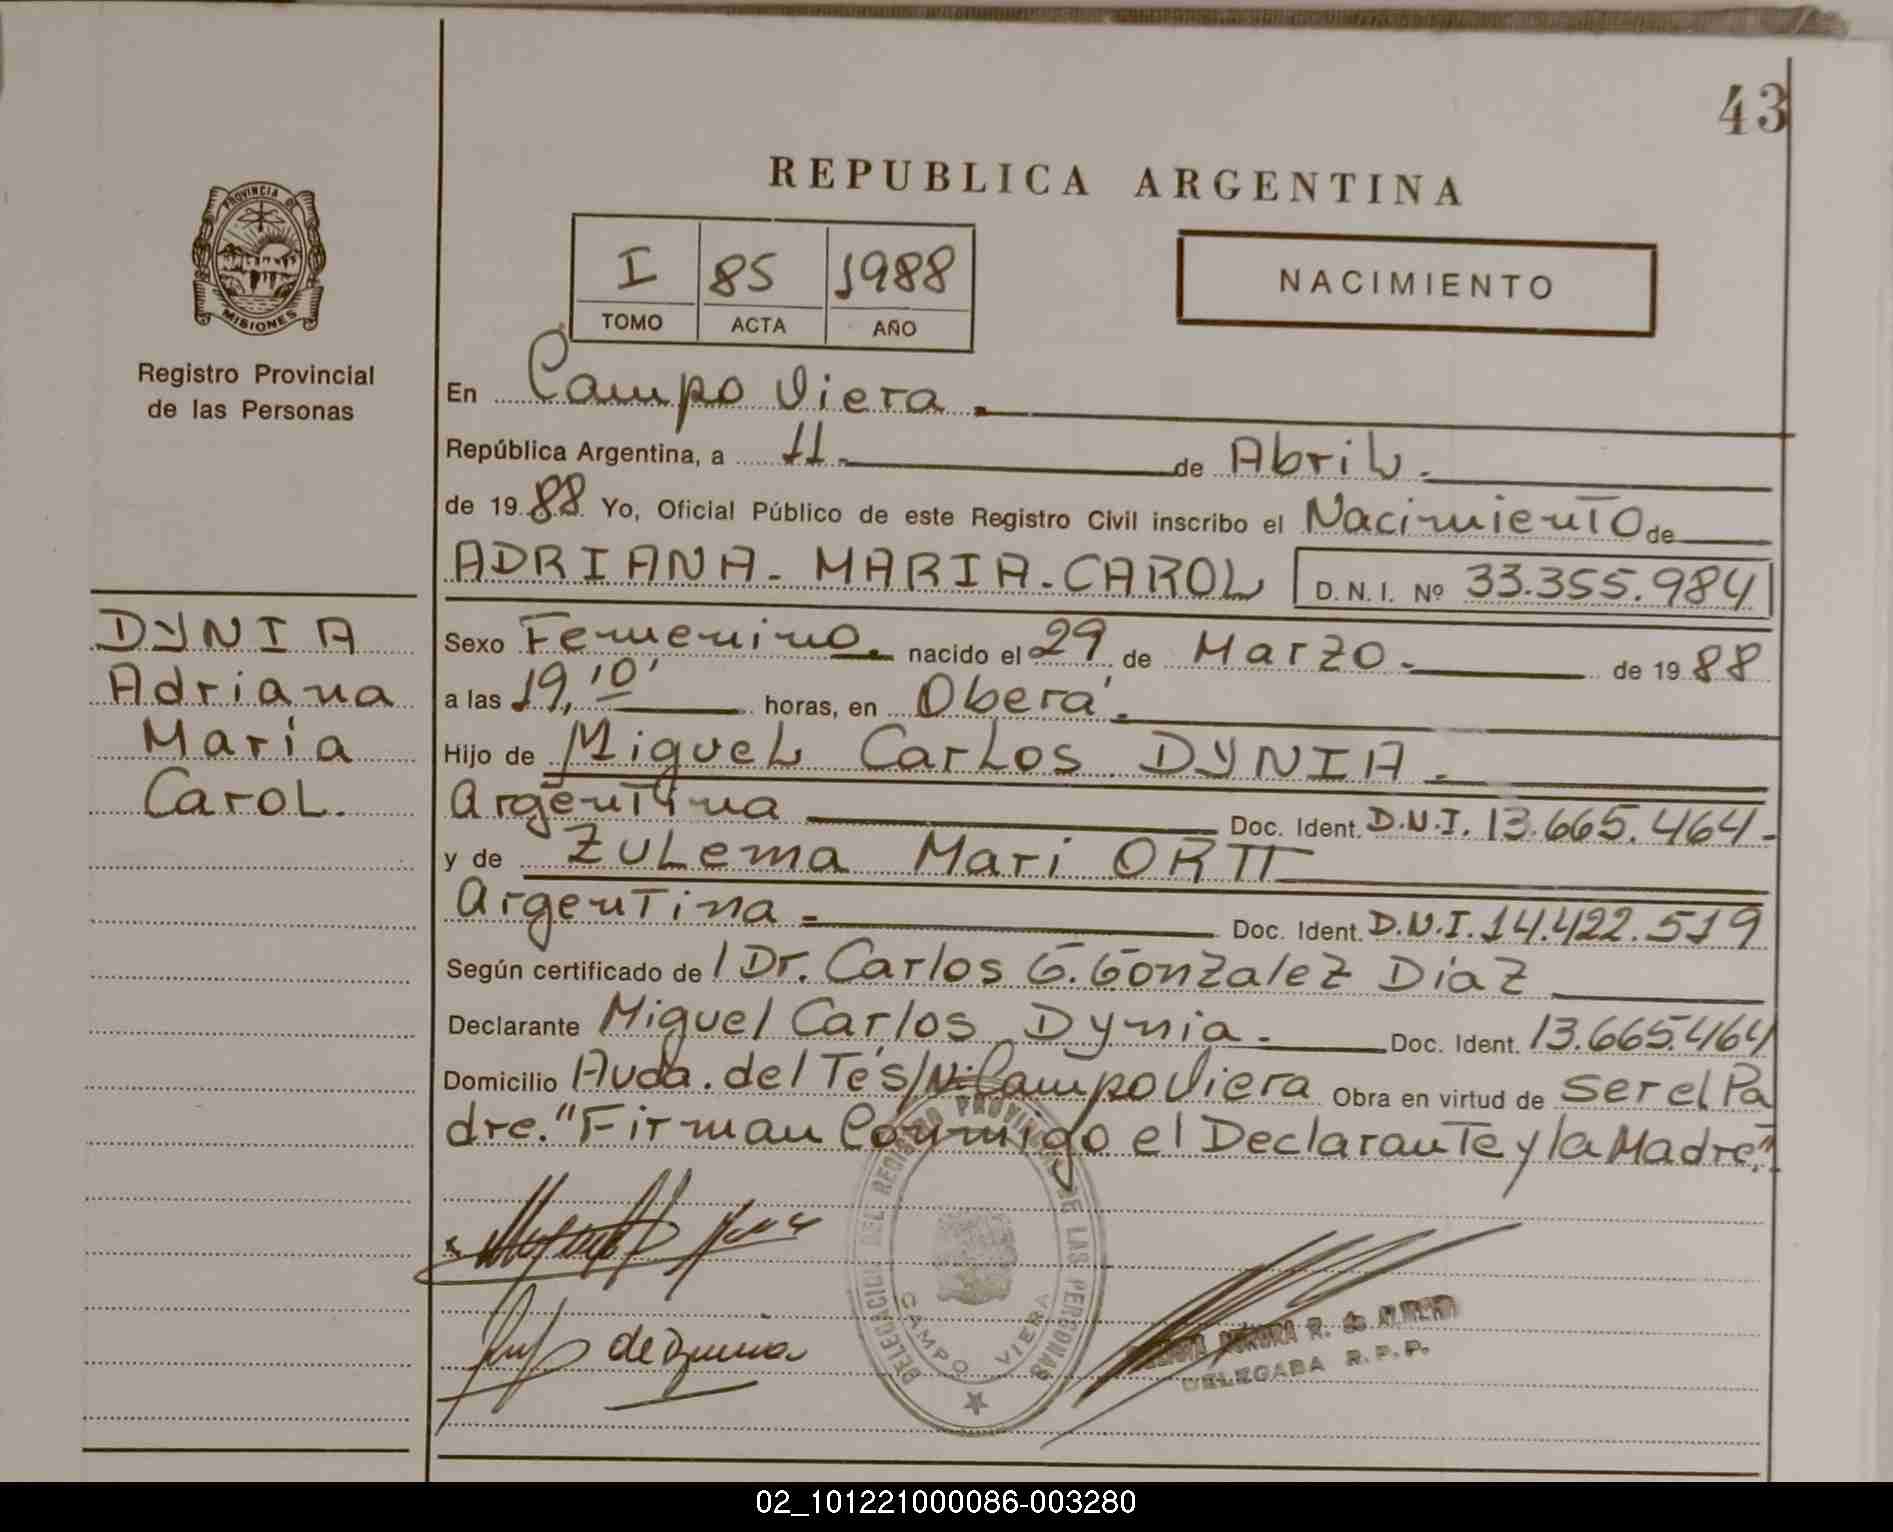 43
REPUBLICA ARGENTINA
PROVINCIA DE
MISIONES
I 85 1988
TOMO ACTA AÑO
NACIMIENTO
Registro Provincial
de las Personas
En Campo Viera.
República Argentina, a 11 de Abril.
de 1988 Yo, Oficial Público de este Registro Civil inscribo el Nacimiento de
ADRIANA-MARIA-CAROL D. N. I. Nº 33.355.984
DYNIA
Adriana
María
Carol.
Sexo Femenino. nacido el 29 de Marzo. de 1988
a las 19,10' horas, en Oberá.
Hijo de Miguel Carlos DYNIA.
Argentina Doc. Ident. D.N.I. 13.665.464-
y de Zulema Mari ORTT
Argentina Doc. Ident. D.N.I. 14.422.519
Según certificado de / Dr. Carlos G. Gonzalez Diaz
Declarante Miguel Carlos Dynia. Doc. Ident. 13.665.464
Domicilio Avda. del Té s/Nº Campo Viera Obra en virtud de ser el Pa
dre. "Firman Conmigo el Declarante y la Madre."
de Dynia
DELEGACION DEL REGISTRO PROVINCIAL DE LAS PERSONAS
CAMPO VIERA
R. de
DELEGADA R.P.P.
02_101221000086-003280